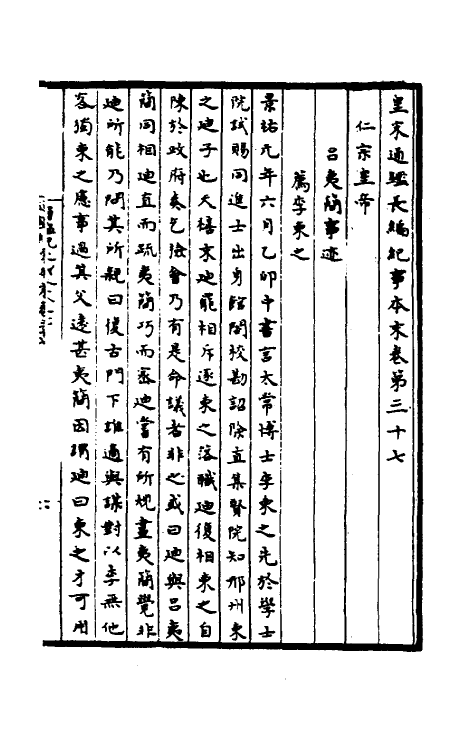 皇宋通鑑長編紀事本末卷第三十七
仁宗皇帝
呂夷簡事迹
薦李東之
景祐元年六月乙卯中書言太常博士李東之先於學士
院試賜同進士出身館閣校勘詔除直集賢院知邢州東
之迪子也天禧末迪罷相斥逐東之落職迪復相東之自
陳於政府奏乞檢會乃有是命議者非之或曰迪與呂夷
簡同相迪直而疏夷簡巧而密迪嘗有所規畫夷簡覺非
迪所能乃問其所親曰復古門下誰適與謀對以李無他
客獨東之慮事過其父遠甚夷簡因謂迪曰東之才可用